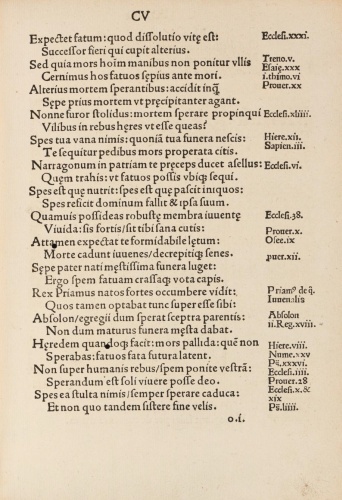 CV
Expectet fatum: quod dissolutio vitę est:
Successor fieri qui cupit alterius.
Sed quia mors hoīm manibus non ponitur vllis
Cernimus hos fatuos sępius ante mori.
Alterius mortem sperantibus: accidit inqȝ
Sępe prius mortem vt pręcipitanter agant.
Nonne furor stolidus: mortem sperare propinqui
Vilibus in rebus hęres vt esse queas?
Spes tua vana nimis: quoniā tua funera nescis:
Te sequitur pedibus mors properata citis.
Narragonum in patriam te pręceps ducet asellus:
Quem trahis: vt fatuos possis vbiqȝ sequi.
Spes est quę nutrit: spes est quę pascit iniquos:
Spes reficit dominum fallit & ipsa suum.
Quamuis possideas robustę membra iuuentę
Viuida: sis fortis/ sit tibi sana cutis:
Attamen expectat te formidabile lętum:
Morte cadunt iuuenes/ decrepitiqȝ senes.
Sępe pater nati męstissima funera luget:
Ergo spem fatuam crassaqȝ vota capis.
Rex Priamus natos fortes occumbere vidit:
Quos tamen optabat tunc super esse sibi:
Absolon/ egregii dum sperat sceptra parentis:
Non dum maturus funera męsta dabat.
Hęredem quandoqȝ facit: mors pallida: quē non
Sperabas: fatuos fata futura latent.
Non super humanis rebus/ spem ponite vestrā:
Sperandum est soli viuere posse deo.
Spes ea stulta nimis/ semper sperare caduca:
Et non quo tandem sistere fine velis.
o.i.
Ecclesi.xxxi.
Treno.v.
Esaię.xxx
i.thimo.vi
Prouer.xx
Ecclesi.xliiii.
Hiere.xii.
Sapien.iii.
Ecclesi.vi.
Ecclesi.38.
Prouer.x.
Osee.ix
puer.xii.
Absolon
ii.Reg.xviii.
Hiere.viii.
Nume.xxv
Ps̄.xxxvi.
Ecclesi.iiii.
Prouer.28
Ecclesi.x.&
xix
Ps̄.liiii.